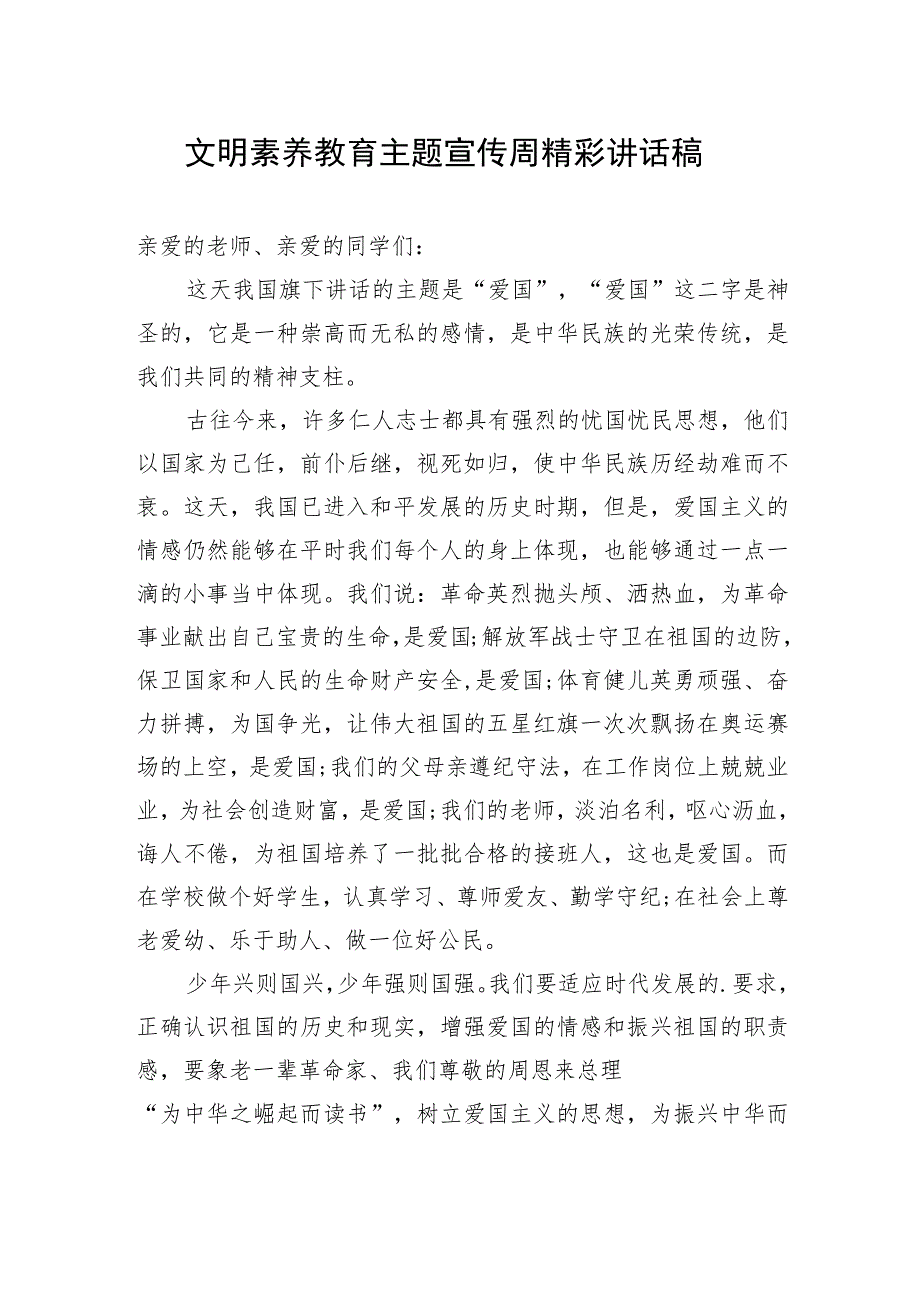 文明素养教育主题宣传周精彩讲话稿
亲爱的老师、亲爱的同学们：
这天我国旗下讲话的主题是“爱国”，“爱国”这二字是神
圣的，它是一种崇高而无私的感情，是中华民族的光荣传统，是
我们共同的精神支柱。
古往今来，许多仁人志士都具有强烈的忧国忧民思想，他们
以国家为己任，前仆后继，视死如归，使中华民族历经劫难而不
衰。这天，我国已进入和平发展的历史时期，但是，爱国主义的
情感仍然能够在平时我们每个人的身上体现，也能够通过一点一
滴的小事当中体现。我们说：革命英烈抛头颅、洒热血，为革命
事业献出自己宝贵的生命,是爱国;解放军战士守卫在祖国的边防，
保卫国家和人民的生命财产安全,是爱国;体育健儿英勇顽强、奋
力拼搏，为国争光，让伟大祖国的五星红旗一次次飘扬在奥运赛
场的上空，是爱国;我们的父母亲遵纪守法，在工作岗位上兢兢业
业，为社会创造财富，是爱国;我们的老师，淡泊名利，呕心沥血，
诲人不倦，为祖国培养了一批批合格的接班人，这也是爱国。而
在学校做个好学生，认真学习、尊师爱友、勤学守纪;在社会上尊
老爱幼、乐于助人、做一位好公民。
少年兴则国兴，少年强则国强。我们要适应时代发展的.要求，
正确认识祖国的历史和现实，增强爱国的情感和振兴祖国的职责
感，要象老一辈革命家、我们尊敬的周恩来总理
“为中华之崛起而读书”，树立爱国主义的思想，为振兴中华而